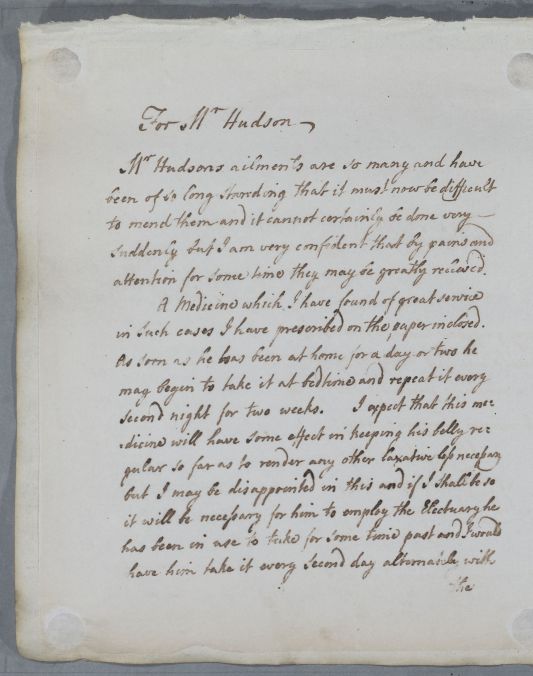 For Mr Hudson
Mr Hudsons ailments are so many and have
been of so long standing that it must now be difficult
to mend them and it cannot certainly be done very —
suddenly but I am very confident that by pains and
attention for some time they may be greatly relieved.
A Medicine which I have found of great service
in such cases I have prescribed on the paper inclosed.
As soon as he has been at home for a day or two he
may begin to take it at bedtime and repeat it every
second night for two weeks. I expect that this me=
=dicine will have some effect in keeping his belly re=
gular so far as to render any other Laxative less necessary
but I may be disappointed in this and if I shall be so
it will be necessary for him to employ the Electuary he
has been in use to take for some time past and I would
have him take it every second day alternately with
the